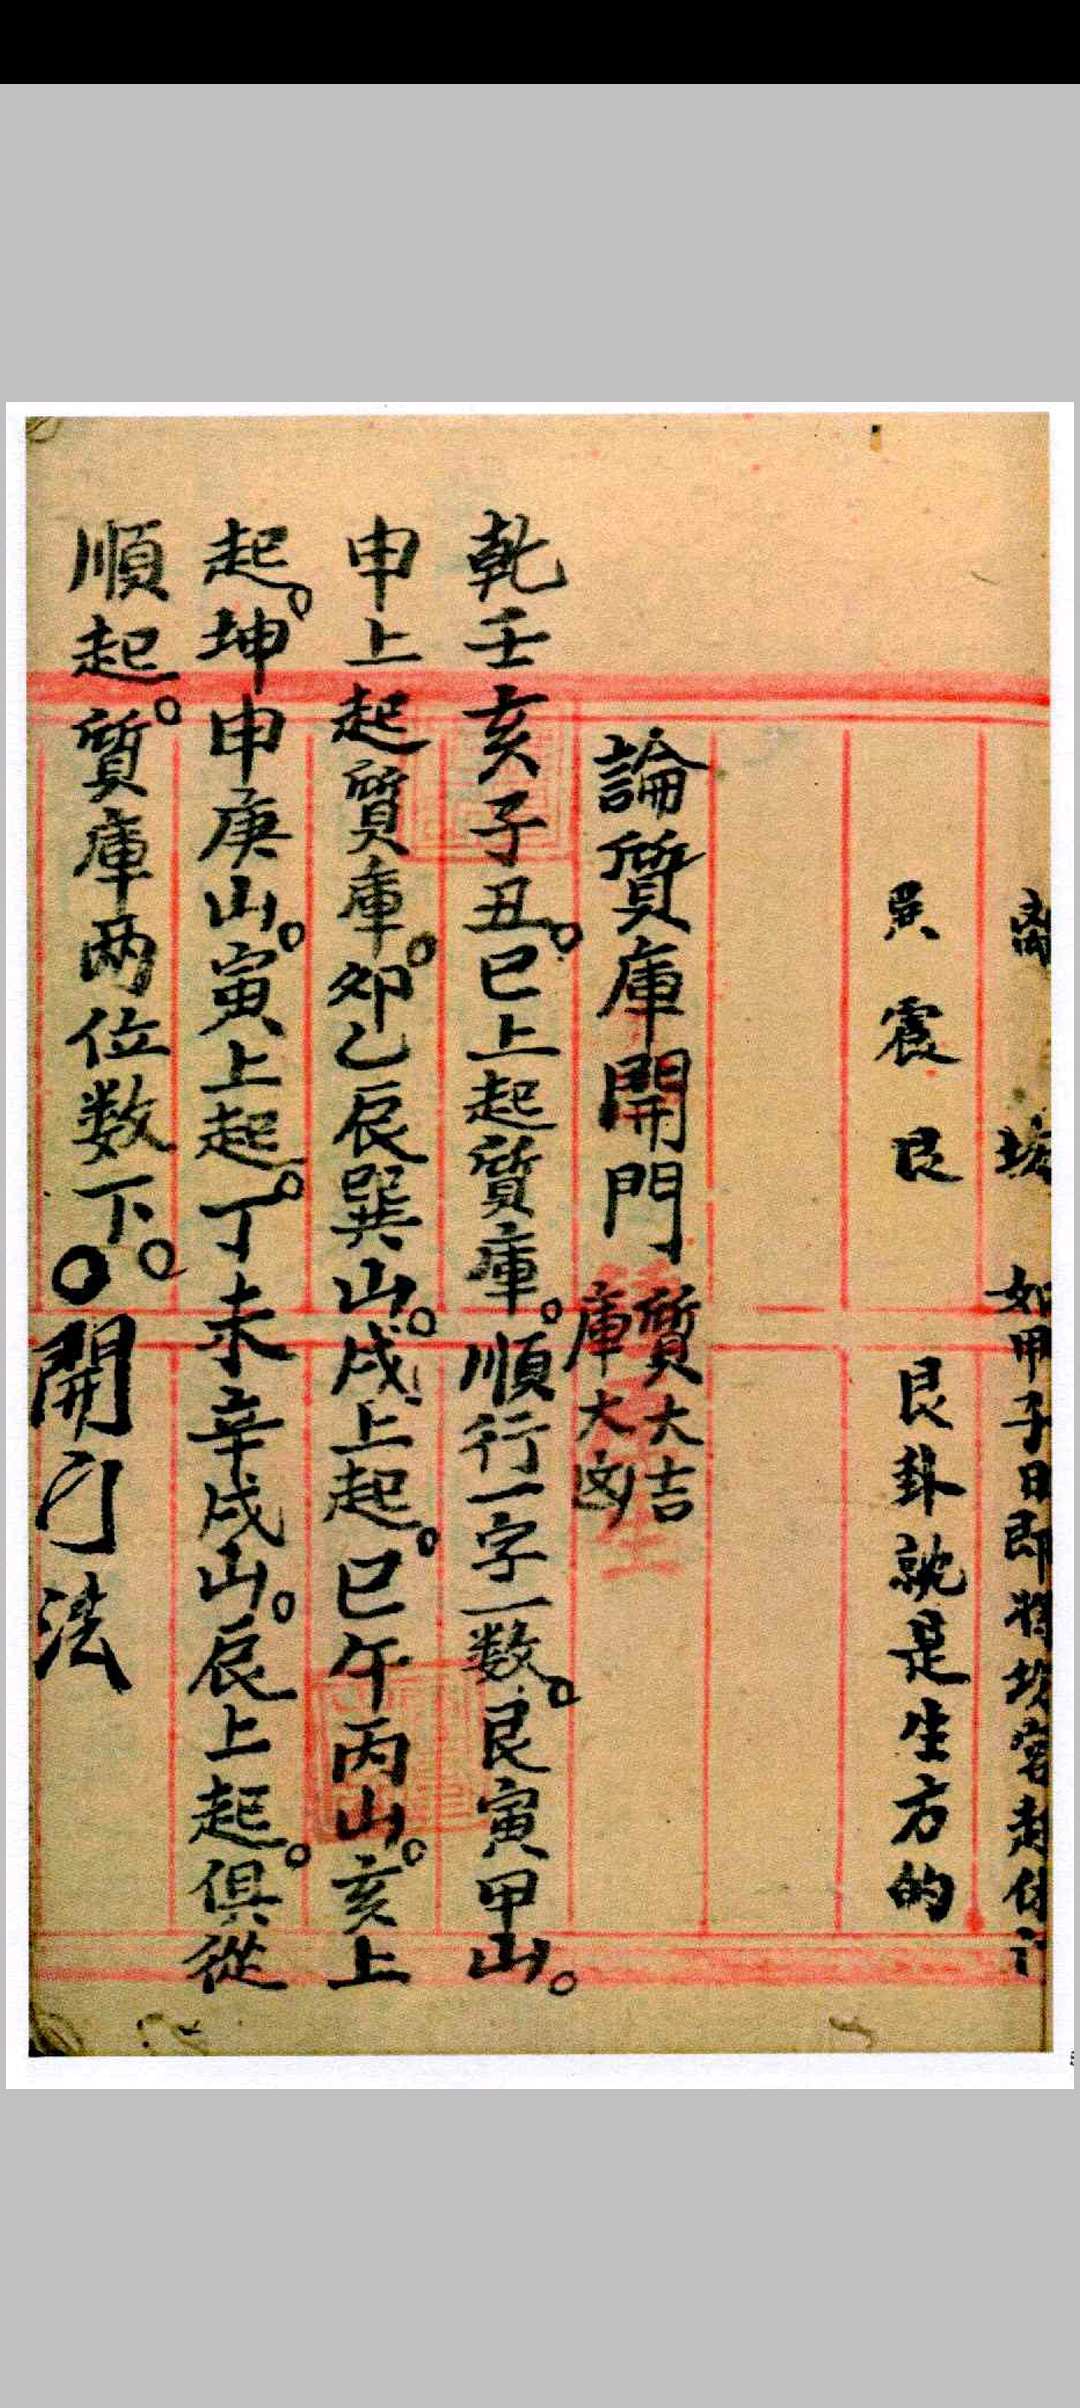 离 坎 如甲子日即将坎宫起休门
巽 震 艮 艮卦就是生方的
論質庫開門 質大吉
庫大凶
乾壬亥子丑。巳上起質庫。順行一字一数。艮寅甲山。
申上起質庫。卯乙辰巽山。戌上起。巳午丙山。亥上
起。坤申庚山。寅上起。丁未辛戌山。辰上起。俱從
順起。質庫两位数下。○開门法